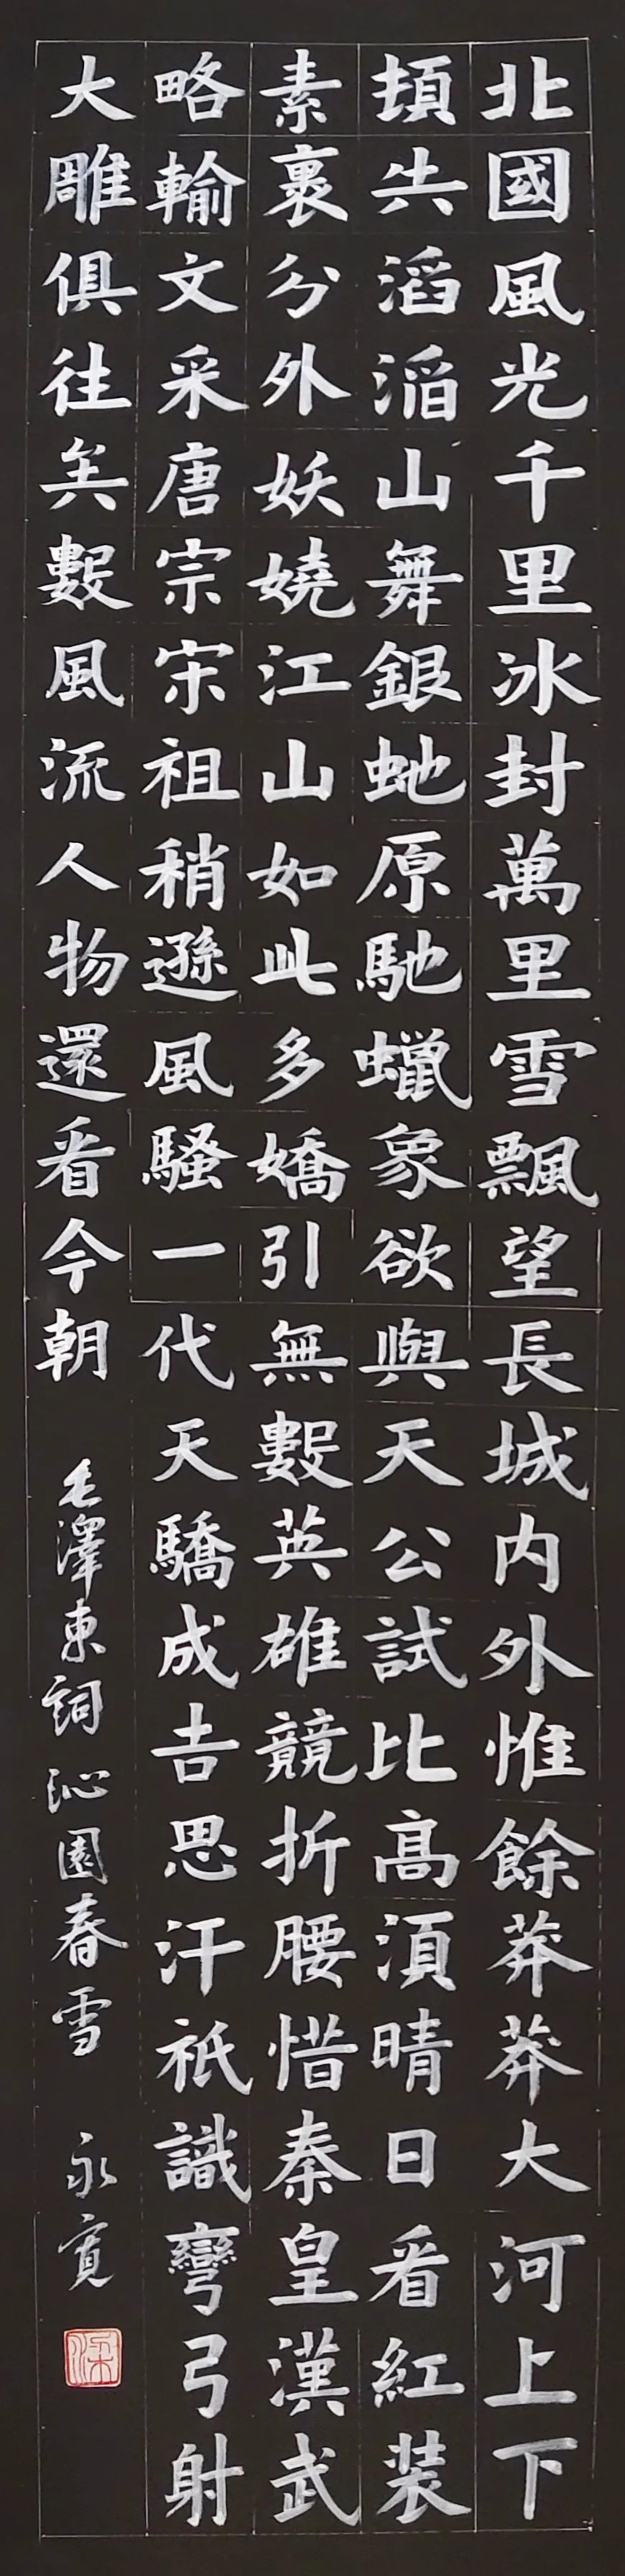 北國風光千里冰封萬里雪飄望長城内外惟餘莽莽大河上下
頓失滔滔山舞銀虵原馳蠟象欲與天公試比高須晴日看紅装
素裹分外妖嬈江山如此多嬌引無數英雄競折腰惜秦皇漢武
略輸文采唐宗宋祖稍遜風騷一代天驕成吉思汗祇識彎弓射
大雕俱往矣數風流人物還看今朝
毛澤東詞沁園春雪
永寬
梁